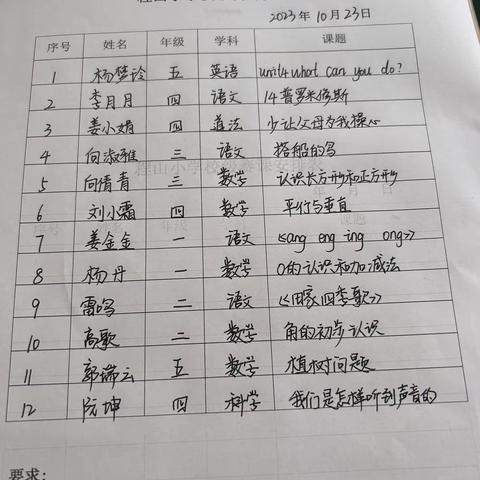 2023年10月23日
序号 姓名 年级 学科 课题
1 杨梦玲 五 英语 unit4 what can you do?
2 李月月 四 语文 14普罗米修斯
3 姜小娟 四 道法 少让父母为我操心
4 向淑雅 三 语文 搭船的鸟
5 向倩青 三 数学 认识长方形和正方形
6 刘小霜 四 数学 平行与垂直
7 姜金金 一 语文 《ang eng ing ong》
8 杨丹 一 数学 0的认识和加减法
9 雷鸣 二 语文 《田家四季歌》
10 高歌 二 数学 角的初步认识
11 郭瑞云 五 数学 植树问题
12 阮坤 四 科学 我们是怎样听到声音的
要求: